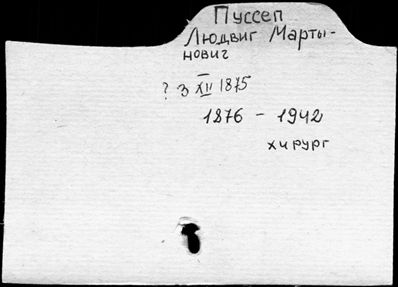 Пуссеп
Людвиг Марты-
нович
? 3 XII 1875
1876 - 1942
хирург